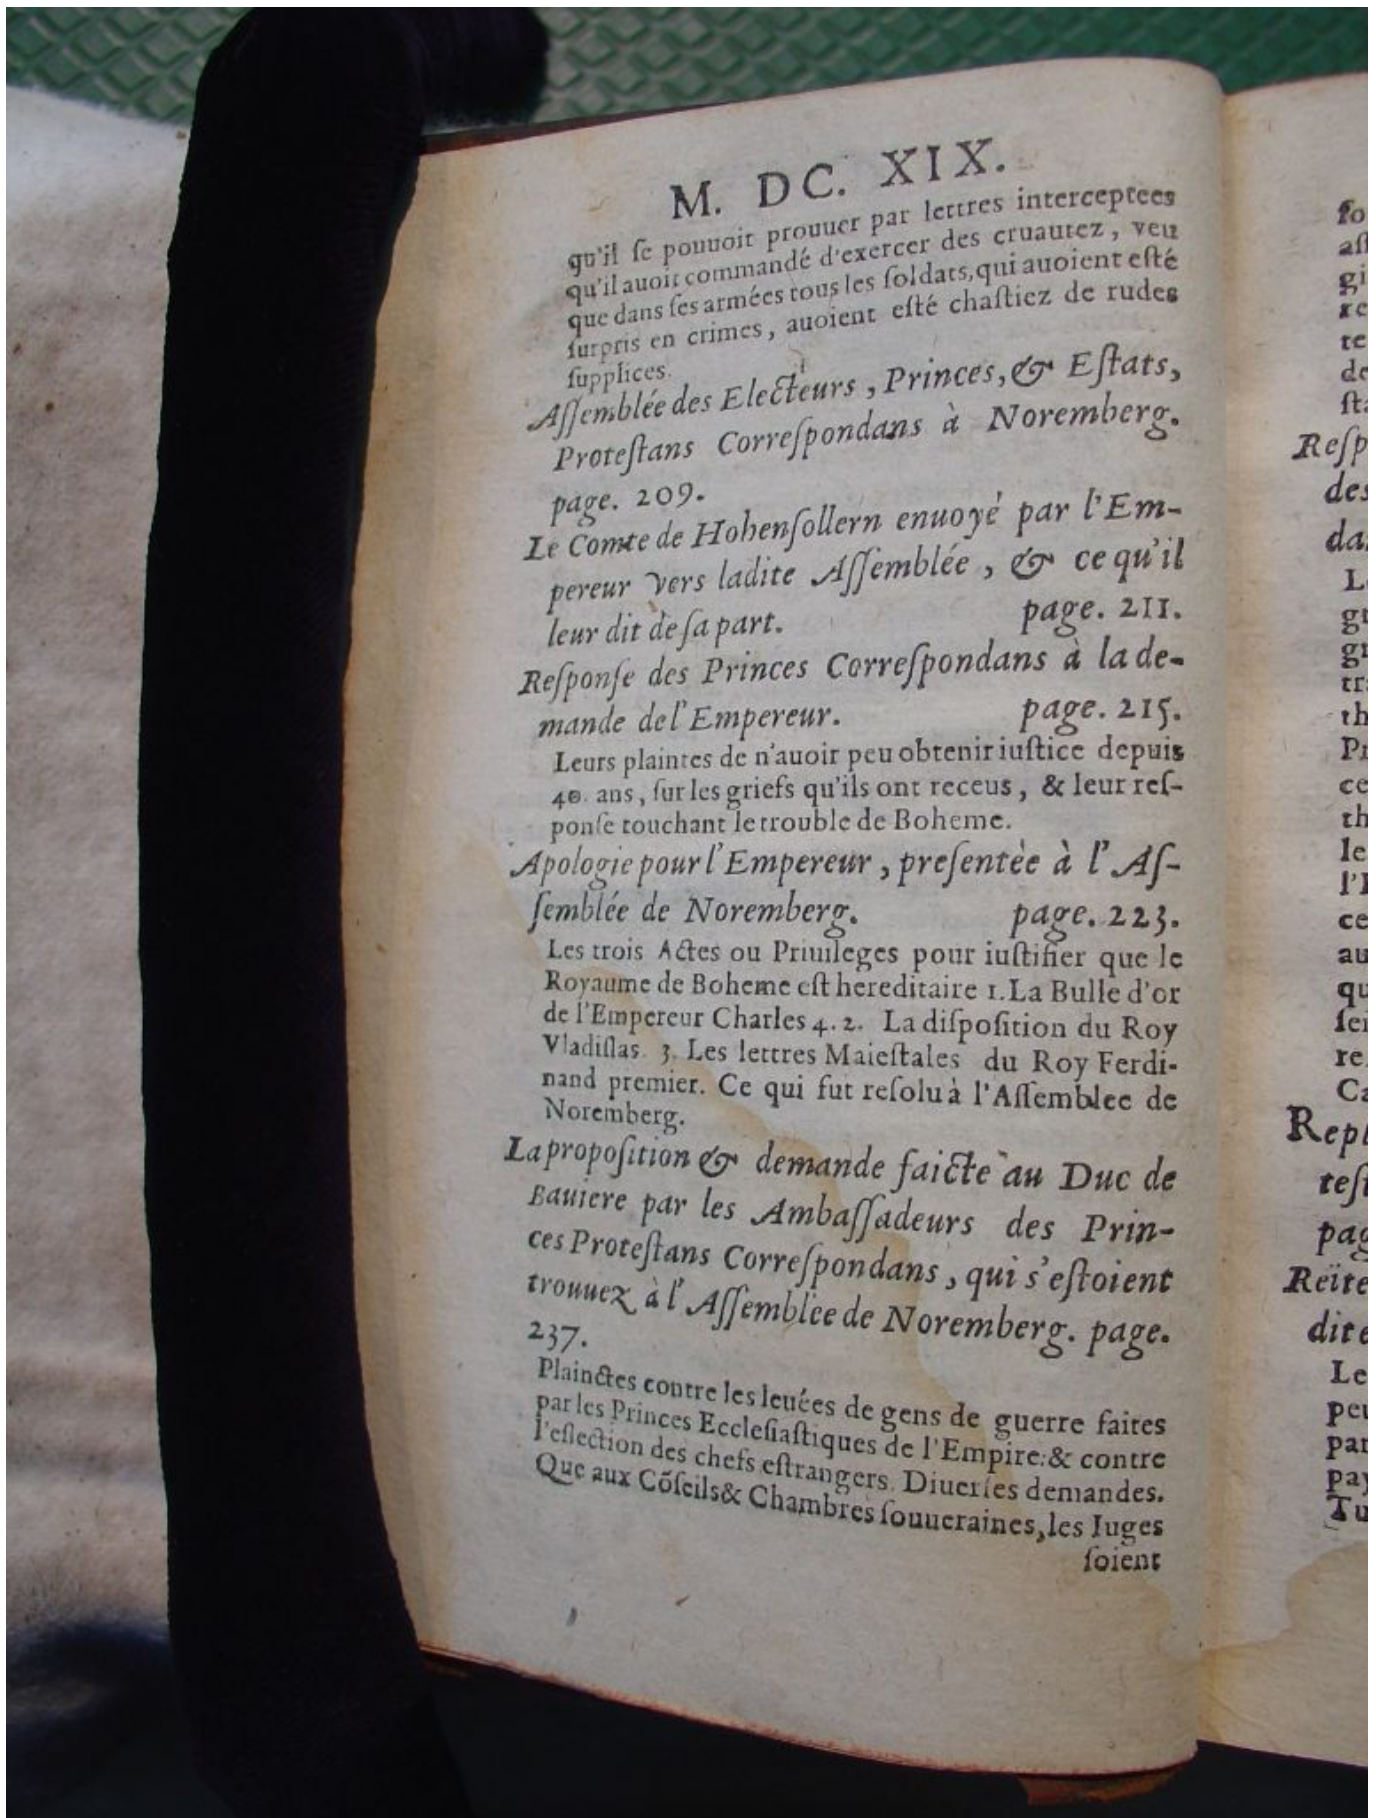 M. DC. XIX.
qu'il ſe pouuoit prouuer par lettres interceptees
qu'il auoit commandé d'exercer des cruautez, veu
que dans ſes armées tous les ſoldats, qui auoient eſté
ſurpris en crimes, auoient eſté chaſtiez de rudes
ſupplices.
Aſſemblée des Electeurs, Princes, & Eſtats,
Proteſtans Correſpondans à Noremberg.
page. 209.
Le Comte de Hohenſollern enuoyé par l'Em-
pereur vers ladite Aſſemblée, & ce qu'il
leur dit de ſa part. page. 211.
Reſponſe des Princes Correſpondans à la de-
mande de l'Empereur. page. 215.
Leurs plaintes de n'auoir peu obtenir iuſtice depuis
40. ans, ſur les griefs qu'ils ont receus, & leur reſ-
ponſe touchant le trouble de Boheme.
Apologie pour l'Empereur, preſentée à l'Aſ-
ſemblée de Noremberg. page. 223.
Les trois Actes ou Priuileges pour iuſtifier que le
Royaume de Boheme eſt hereditaire 1. La Bulle d'or
de l'Empereur Charles 4. 2. La diſpoſition du Roy
Vladiſlas. 3. Les lettres Maieſtales du Roy Ferdi-
nand premier. Ce qui fut reſolu à l'Aſſemblee de
Noremberg.
La propoſition & demande faicte au Duc de
Bauiere par les Ambaſſadeurs des Prin-
ces Proteſtans Correſpondans, qui s'eſtoient
trouuez à l'Aſſemblée de Noremberg. page.
237.
Plainctes contre les leuées de gens de guerre faites
par les Princes Eccleſiaſtiques de l'Empire: & contre
l'eſlection des chefs eſtrangers. Diuerſes demandes.
Que aux Cõſeils & Chambres ſouueraines, les Iuges
ſoient
ſo
aſſ
gi
re
te
de
ſta
Reſp
des
da
L
gr
gr
tr
th
Pr
ce
th
le
l'
ce
au
qu
ſei
re
Ca
Repl
teſt
pag
Reïte
dite
Le
peu
par
pay
Tu